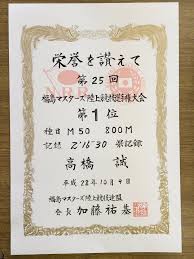 栄誉を讃えて
第25回
福島マスターズ陸上競技選手権大会
第1位
種目 M50 800M
記録 2'16"30 県記録
高橋 誠
平成28年10月9日
福島マスターズ陸上競技連盟
会長 加藤祐基